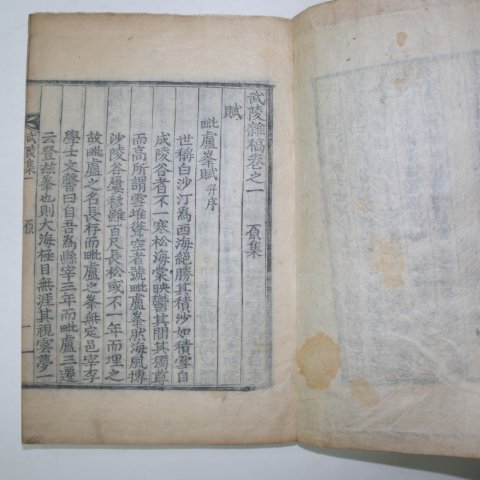 武陵雜稿卷之一　原集
賦
毗盧峯賦 并序
世稱白沙汀爲西海絕勝其積沙如積雪自
成陵谷者不一寒松海棠映鬱其間其獨尊
而高所謂雪堆聳空者號毗盧峯然海風摶
沙陵谷屢移雖百尺長松或不一年而埋之
故毗盧之名長存而毗盧之峯無定邑宰李
學士文馨曰自吾爲縣宰三年而毗盧三遷
云登玆峯也則大海極目無涯其視雲夢一
武陵集　原　一